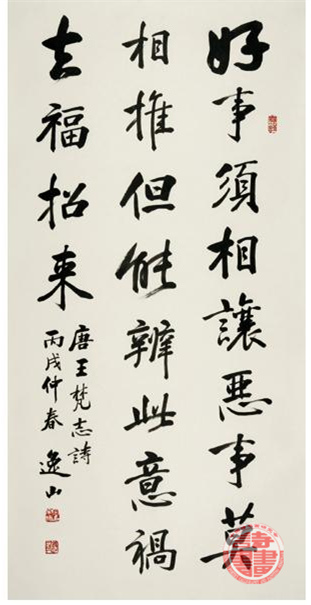 好事須相讓惡事莫
相推但能辨此意禍
去福招来
唐王梵志詩
丙戌仲春 逸山